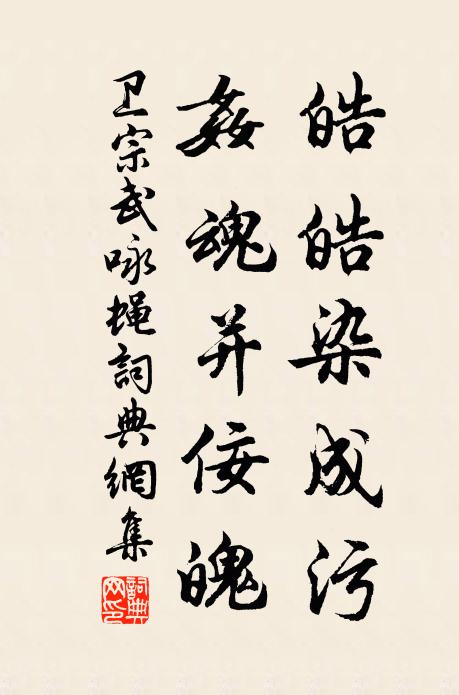 皓皓染成污
姦魂并佞魄
卫宗武咏蝇詞典網集
詞典网印